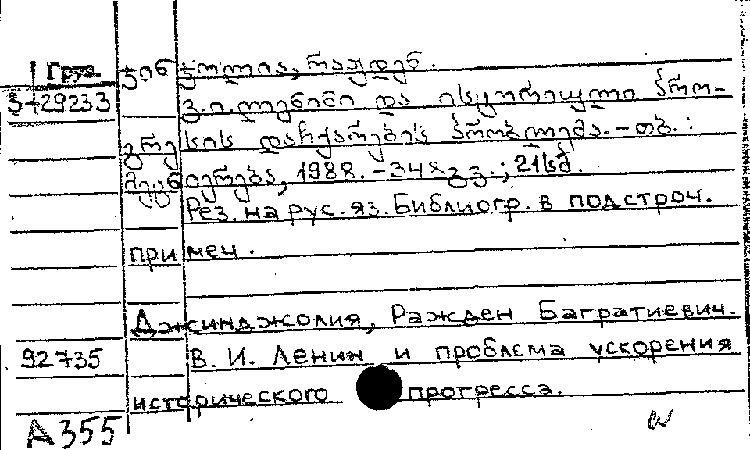 Груз. ჯინჯოლია, რაჟდენ.
3-29233 ვ.ი.ლენინი და ისტორიული პრო-
გრესის დაჩქარების პრობლემა. - თბ. :
მეცნიერება, 1988. - 348გვ.; 21სმ.
Рез. на рус. яз. Библиогр. в подстроч.
примеч.
Джинджолия, Ражден Багратиевич.
92735 В. И. Ленин и проблема ускорения
исторического прогресса.
А355